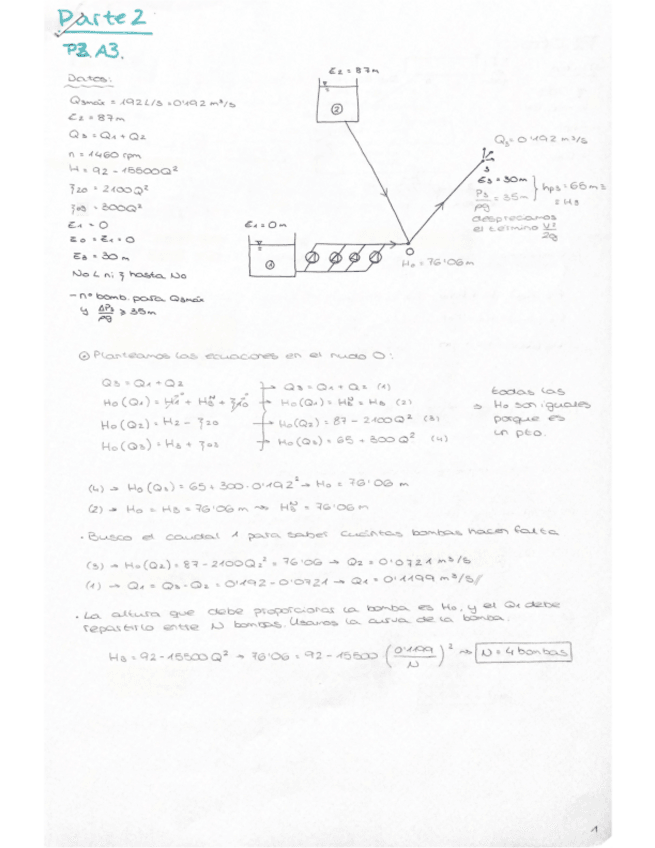 Parte 2
P3. A3.
Datos:
Q3max = 192 L/s = 0'192 m³/s
Z2 = 87 m
Q3 = Q1 + Q2
n = 1460 rpm
H = 92 - 15500Q²
ξ20 = 2100Q²
ξ03 = 300Q²
Z1 = 0
Z0 = Z1 = 0
Z3 = 30 m
No L ni ξ hasta No
- nº bomb. para Q3máx
y ΔP3/ρg ≥ 35m
Z2 = 87m
2
Z1 = 0m
1
O
H0 = 76'06 m
Q3 = 0'192 m³/s
3
Z3 = 30m
P3/ρg = 35m
hp3 = 65 m
= H3
despreciamos
el término V²/2g
Planteamos las ecuaciones en el nudo O:
Q3 = Q1 + Q2 → Q3 = Q1 + Q2 (1)
H0(Q1) = H1 + HB^N + ξ10 → H0(Q1) = HB^N = HB (2)
H0(Q2) = H2 - ξ20 → H0(Q2) = 87 - 2100Q² (3)
H0(Q3) = H3 + ξ03 → H0(Q3) = 65 + 300Q² (4)
todas las
⇒ H0 son iguales
porque es
un pto.
(4) → H0(Q3) = 65 + 300 · 0'192² → H0 = 76'06 m
(2) → H0 = HB = 76'06 m → HB^N = 76'06 m
· Busco el caudal 1 para saber cuántas bombas hacen falta
(3) → H0(Q2) = 87 - 2100Q2² = 76'06 → Q2 = 0'0721 m³/s
(1) → Q1 = Q3 - Q2 = 0'192 - 0'0721 → Q1 = 0'1199 m³/s
· La altura que debe proporcionar la bomba es H0, y el Q1 debe
repartirlo entre N bombas. Usamos la curva de la bomba.
HB = 92 - 15500Q² → 76'06 = 92 - 15500 (0'1199/N)² → N = 4 bombas
1